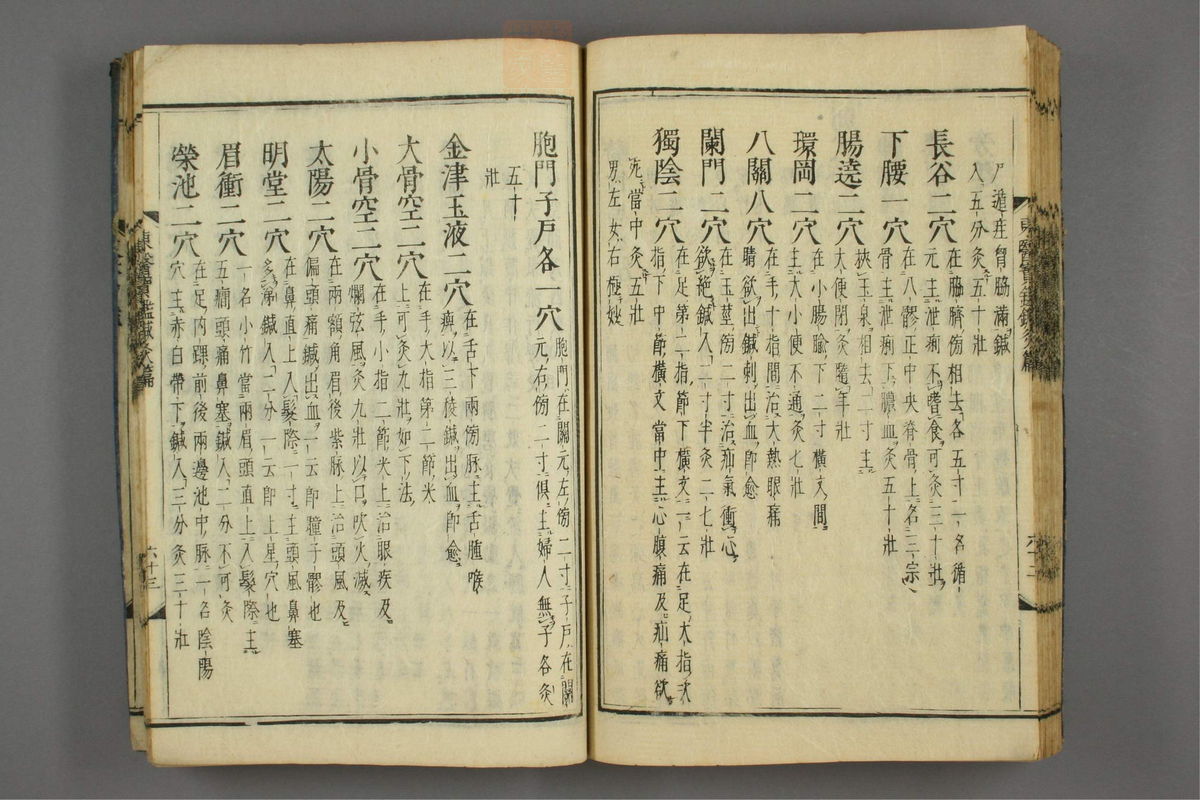 東醫寶鑑鍼灸篇
六十二
尸遁疰胷脇滿鍼
入五分灸五十壯
長谷二穴
在脇臍傍相去各五寸一名循
元主泄痢不嗜食可灸三十壯
下腰一穴
在八髎正中央脊骨上名三宗
骨主泄痢下膿血灸五十壯
腸遶二穴
挾玉泉相去二寸主
大便閉灸隨年壯
環岡二穴
在小腸腧下二寸橫文間
主大小便不通灸七壯
八關八穴
在手十指間治大熱眼痛
睛欲出鍼刺出血卽愈
闌門二穴
在玉莖傍二寸治疝氣衝心
欲絶鍼入二寸半灸二七壯
獨陰二穴
在足第二指節下橫文一云在足大指次
指下中節橫文當中主心腹痛及疝痛欲
死當中灸五壯
男左女右極妙
胞門子戶各一穴
胞門在關元左傍二寸子戶在關
元右傍二寸俱主婦人無子各灸
五十
壯
金津玉液二穴
在舌下兩傍脉主舌腫喉
痺以三稜鍼出血卽愈
大骨空二穴
在手大指第二節尖
上可灸九壯如下法
小骨空二穴
在手小指二節尖上治眼疾及
爛弦風灸九壯以口吹火滅
太陽二穴
在兩額角眉後紫脉上治頭風及
偏頭痛鍼出血一云卽瞳子髎也
明堂二穴
在鼻直上入髮際一寸主頭風鼻塞
多涕鍼入二分一云卽上星穴也
眉衝二穴
一名小竹當兩眉頭直上入髮際主
五癎頭痛鼻塞鍼入二分不可灸
榮池二穴
在足內踝前後兩邊池中脉一名陰陽
穴主赤白帶下鍼入三分灸三十壯
東醫寶鑑鍼灸篇
六十三